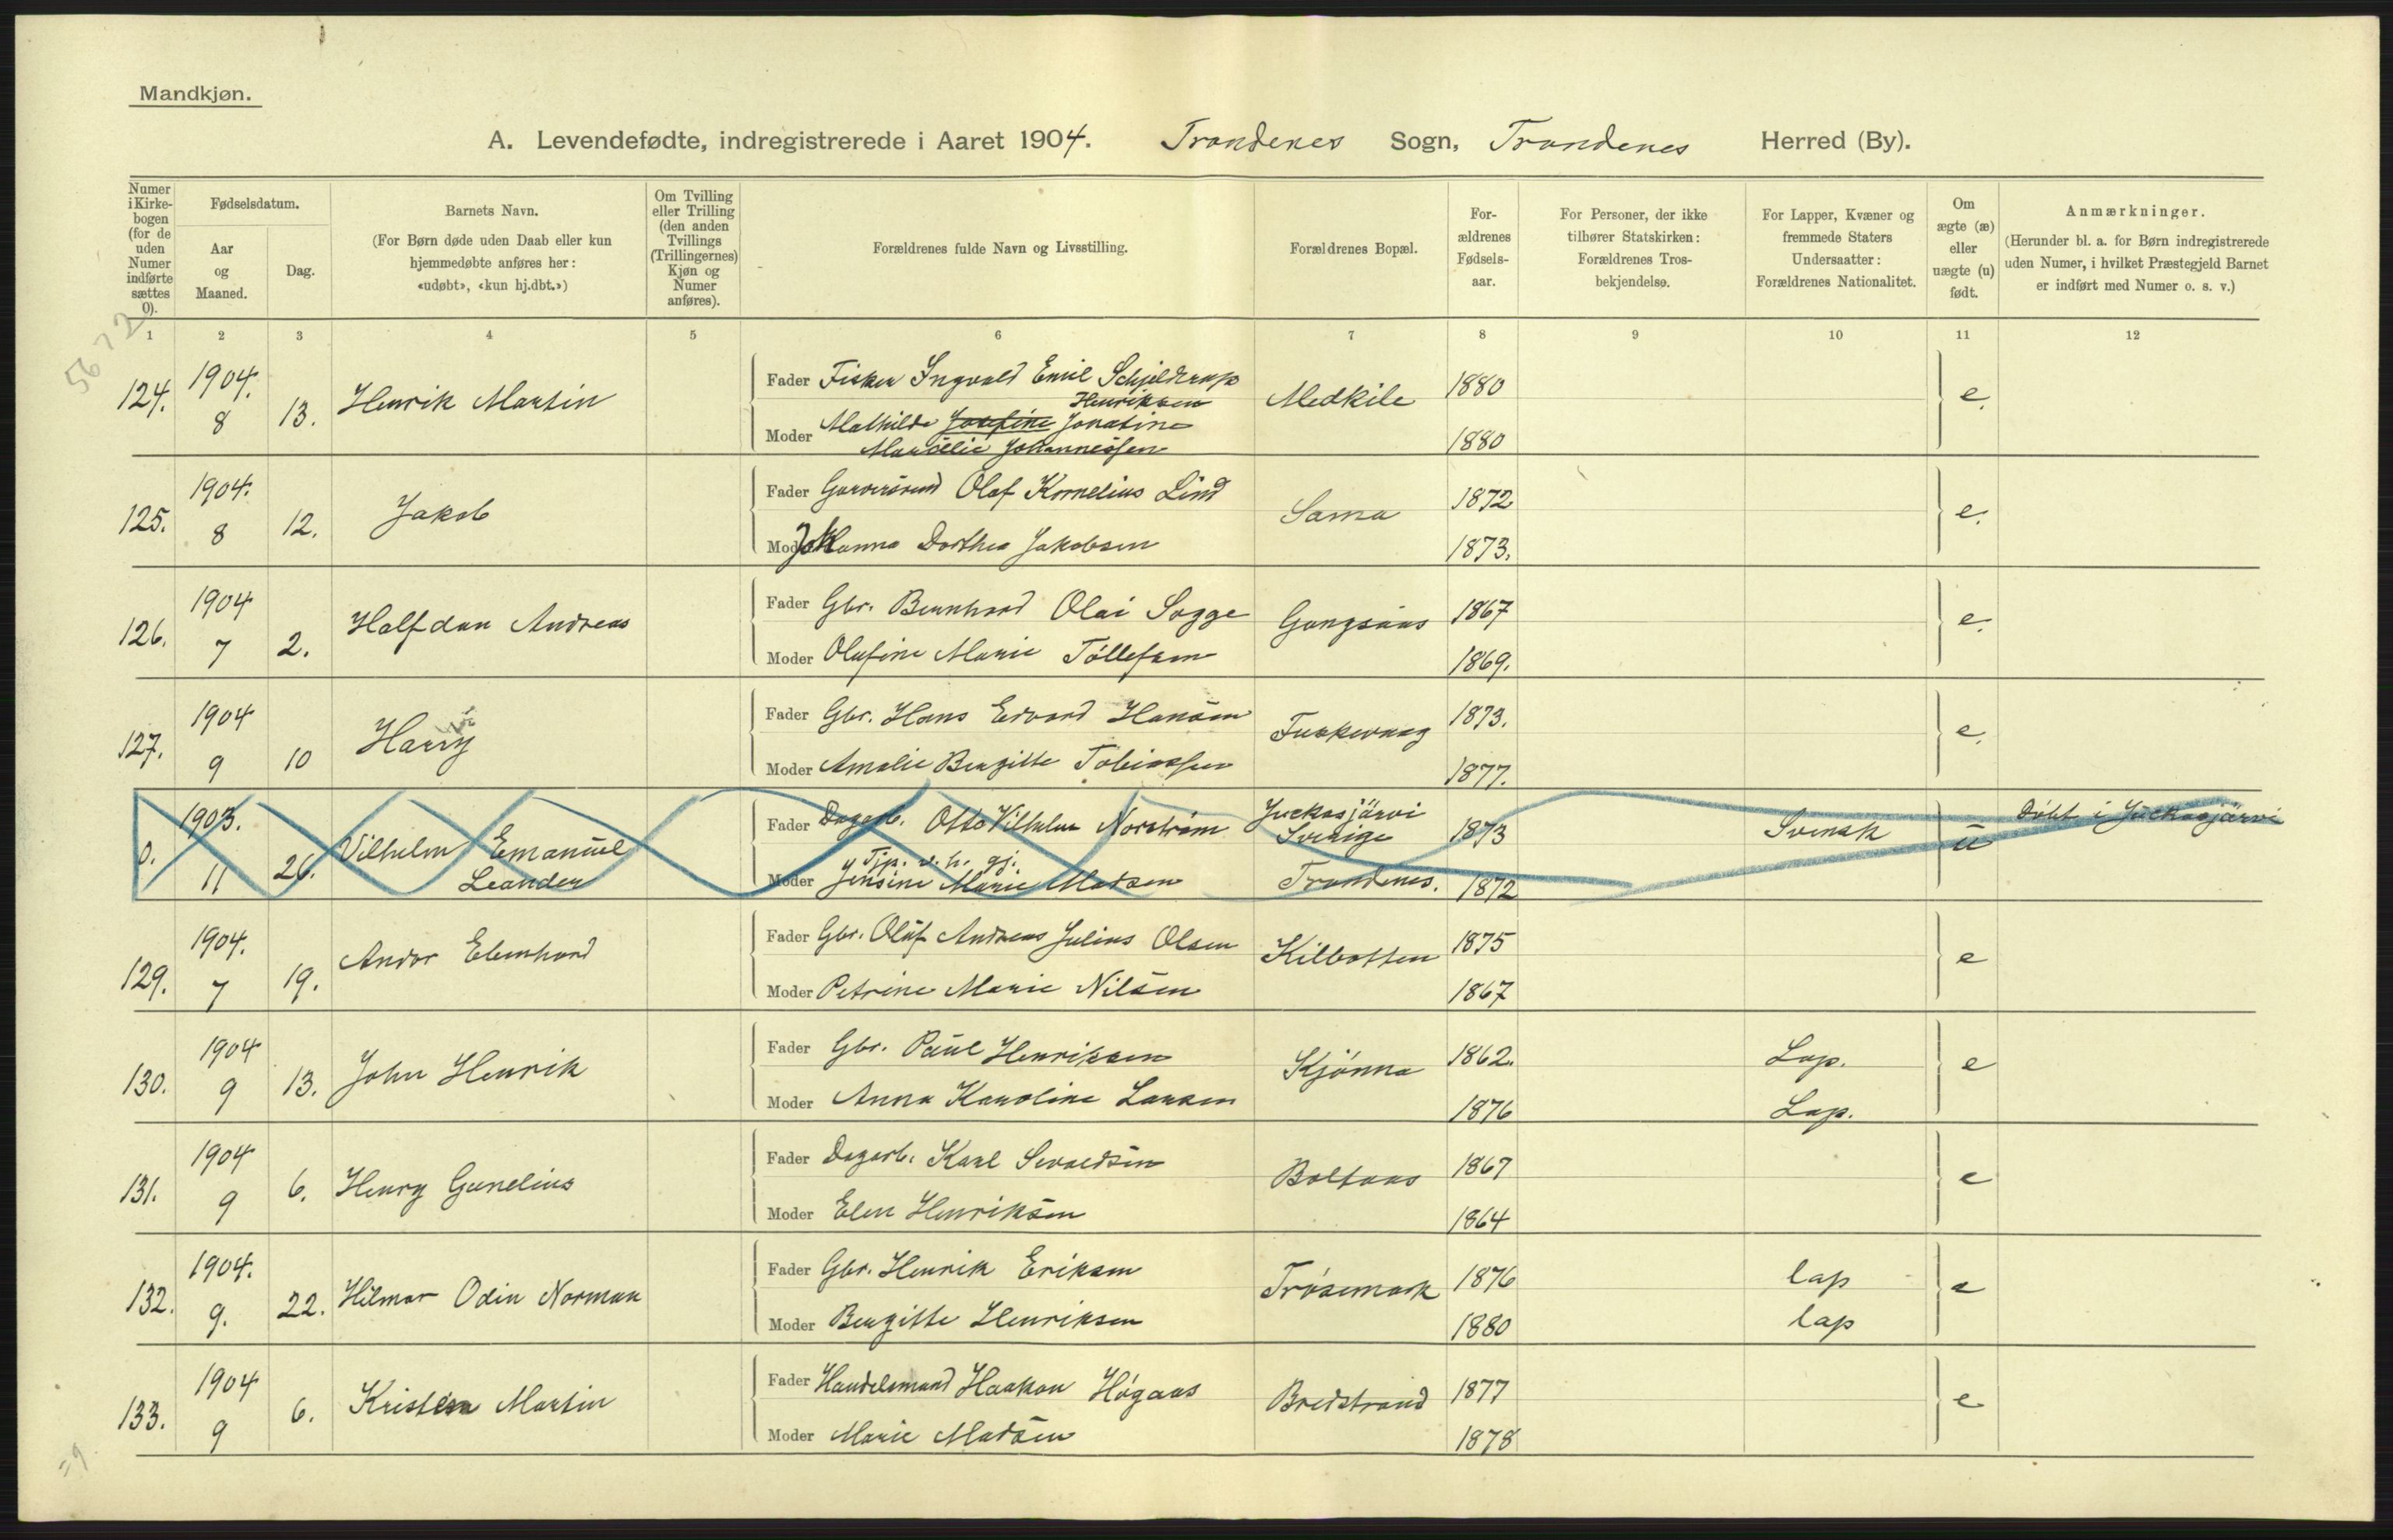 Mandkjøn.
A. Levendefødte, indregistrerede i Aaret 1904. Trondenes Sogn, Trondenes Herred (By).
Numer i Kirke-bogen (for de uden Numer indførte sættes 0).
Fødselsdatum.
Aar og Maaned.
Dag.
Barnets Navn.
(For Børn døde uden Daab eller kun hjemmedøbte anføres her: «udøbt», «kun hj.dbt.»)
Om Tvilling eller Trilling (den anden Tvillings (Trillingernes) Kjøn og Numer anføres).
Forældrenes fulde Navn og Livsstilling.
Forældrenes Bopæl.
For-ældrenes Fødsels-aar.
For Personer, der ikke tilhører Statskirken: Forældrenes Tros-bekjendelse.
For Lapper, Kvæner og fremmede Staters Undersaatter: Forældrenes Nationalitet.
Om ægte (æ) eller uægte (u) født.
Anmærkninger.
(Herunder bl. a. for Børn indregistrerede uden Numer, i hvilket Præstegjeld Barnet er indført med Numer o. s. v.)
1 2 3 4 5 6 7 8 9 10 11 12
5672
124. 1904. 8 13. Henrik Martin
Fader Fisker Ingvald Emil Schjelderup Henriksen Medkile 1880 e.
Moder Mathilde Josefine Jonasine
Marselie Johannessen 1880
125. 1904. 8 12. Jakob
Fader Olaf Kornelius Lind Sama 1872 e.
Moder Johanna Dorthea Jakobsen 1873.
126. 1904 7 2. Halfdan Andreas
Fader Gbr. Bernhard Olai Sogge Gangsaas 1867 e.
Moder Olufine Marie Tollefsen 1869.
127. 1904 9 10 Harry
Fader Gbr. Hans Edvard Hansen Fuskevaag 1873. e.
Moder Amalie Bergitte Tobiassen 1877.
0. 1903. 11 26. Vilhelm Emanuel
Leander
Fader Dagarb. Otto Vilhelm Norström Juckasjärvi
Sverige 1873 Svensk u Døbt i Juckasjärvi
Tjp. v. h. gj.
Moder Jensine Marie Madsen Trondenes. 1872
129. 1904. 7 19. Andor Edenhard
Fader Gbr. Oluf Andreas Julius Olsen Kilbotten 1875 e
Moder Petrine Marie Nilsen 1867
130. 1904 9 13. John Henrik
Fader Gbr. Paul Henriksen Kjønna 1862. Lap. e
Moder Anna Karoline Larsen 1876 Lap.
131. 1904 9 6. Henry Gunelius
Fader Dagarb. Karl Sivaldsen Boltaas 1867 e
Moder Elen Henriksen 1864
132. 1904. 9. 22. Hilmar Odin Norman
Fader Gbr. Henrik Eriksen Trøsemark 1876 lap e
Moder Bergitte Henriksen 1880 lap
133. 1904 9 6. Kristen Martin
Fader Handelsmand Haakon Høgaas Bredstrand 1877 e
Moder Marie Madsen 1878
=9